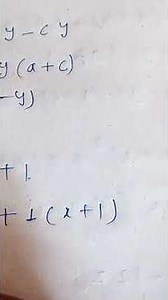 y - c y
y (a + c)
- y)
+ 1
+ 1 (x + 1)